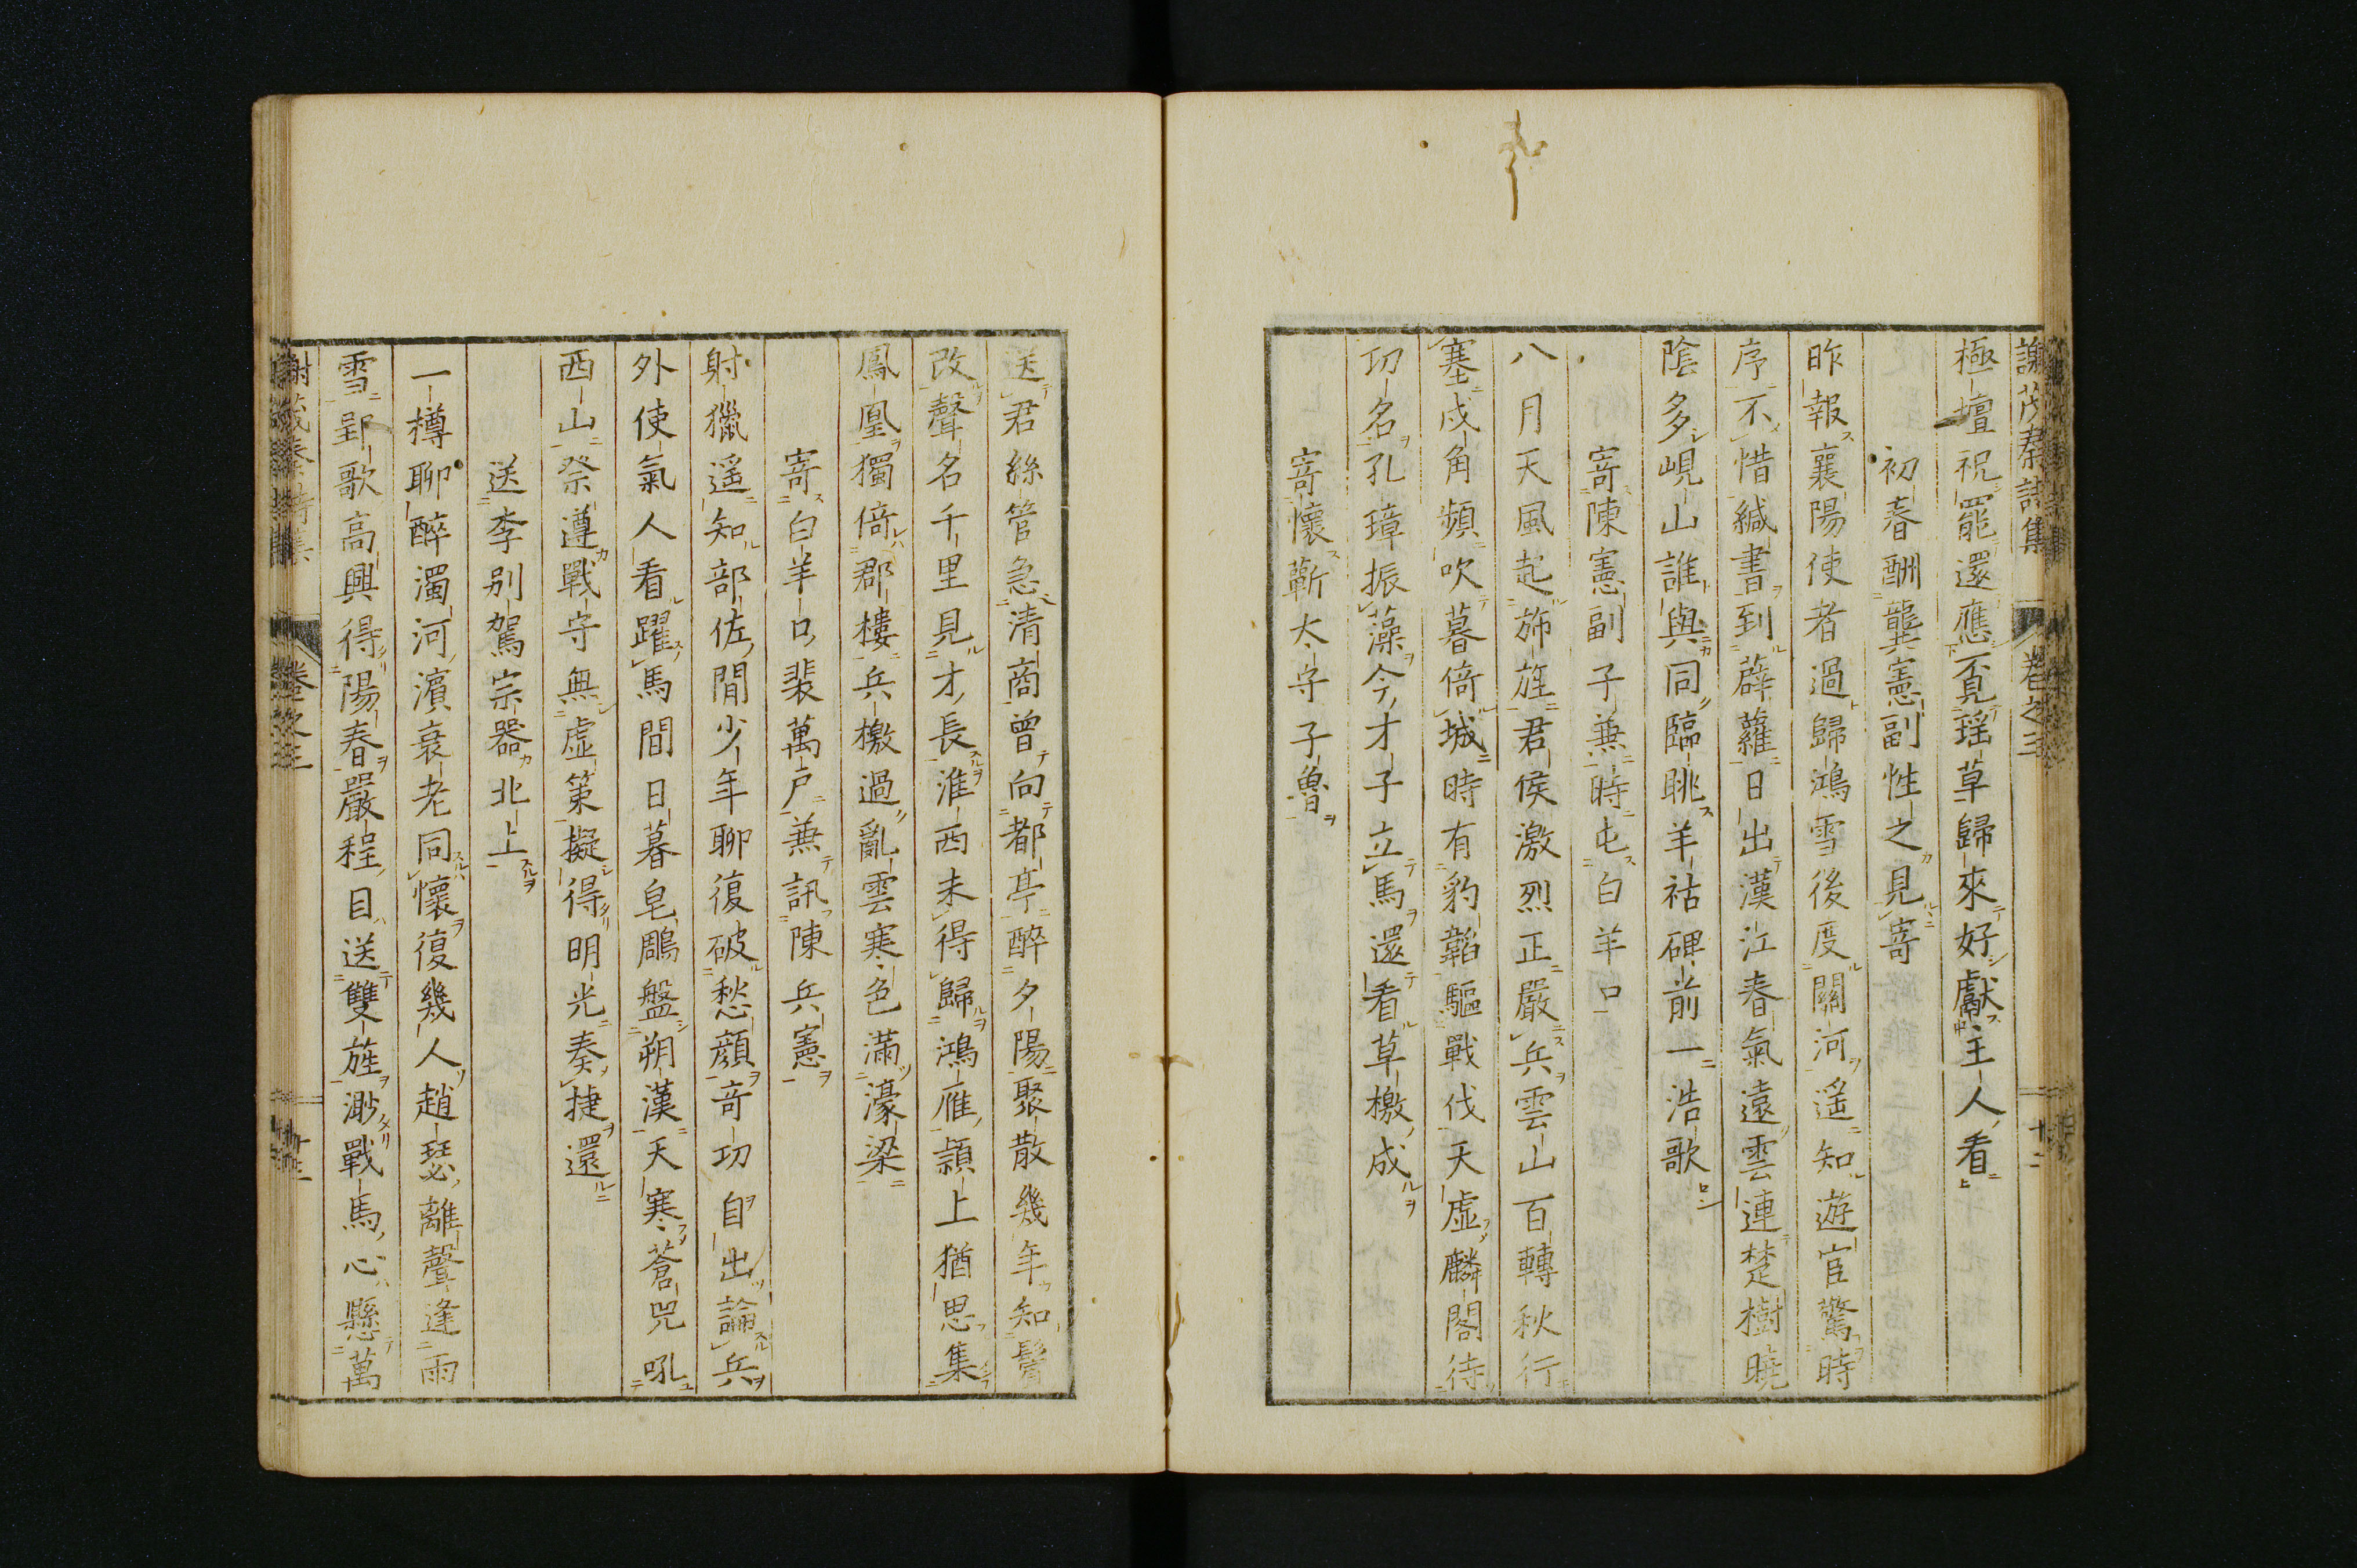 謝茂秦詩集 卷之三 十二
極壇祝罷還應覔瑶草歸來好獻主人看
初春酬龔憲副性之見寄
昨報襄陽使者過歸鴻雪後度關河遥知遊宦驚時
序不惜緘書到薜蘿日出漢江春氣遠雲連楚樹曉
陰多峴山誰與同臨眺羊祜碑前一浩歌
寄陳憲副子兼時屯白羊口
八月天風起斾旌君侯激烈正嚴兵雲山百轉秋行
塞戍角頻吹暮倚城時有豹韜驅戰伐天虛麟閣待
功名孔璋振藻今才子立馬還看草檄成
寄懷蘄太守子魯
送君絲管急清商曾向都亭醉夕陽聚散幾年知鬢
改聲名千里見才長淮西未得歸鴻雁潁上猶思集
鳳凰獨倚郡樓兵檄過亂雲寒色滿濠梁
寄白羊口裴萬户兼訊陳兵憲
射獵遥知部佐閒少年聊復破愁顔奇功自出論兵
外使氣人看躍馬間日暮皂鵰盤朔漢天寒蒼兕吼
西山祭遵戰守無虛策擬得明光奏捷還
送李别駕宗器北上
一樽聊醉濁河濱衰老同懷復幾人趙瑟離聲逢雨
雪郢歌高興得陽春嚴程目送雙旌渺戰馬心懸萬